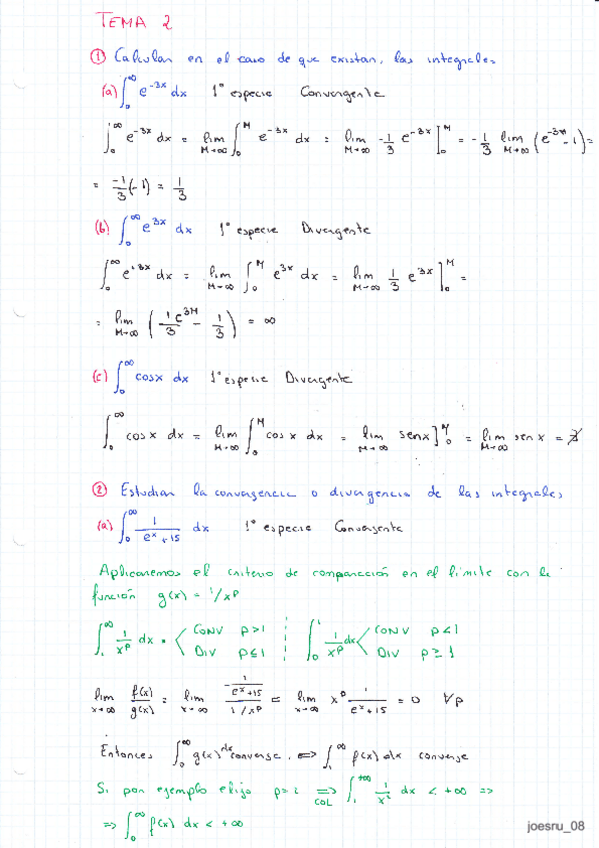 TEMA 2
① Calcular en el caso de que existan, las integrales
(a) ∫₀^∞ e^{-3x} dx 1º especie Convergente
∫₀^∞ e^{-3x} dx = lim_{M→∞} ∫₀^M e^{-3x} dx = lim_{M→∞} -1/3 e^{-3x} ]₀^M = -1/3 lim_{M→∞} (e^{-3M} - 1) =
= -1/3 (-1) = 1/3
(b) ∫₀^∞ e^{3x} dx 1º especie Divergente
∫₀^∞ e^{3x} dx = lim_{M→∞} ∫₀^M e^{3x} dx = lim_{M→∞} 1/3 e^{3x} ]₀^M =
= lim_{M→∞} (1/3 e^{3M} - 1/3) = ∞
(c) ∫₀^∞ cosx dx 1º especie Divergente
∫₀^∞ cosx dx = lim_{M→∞} ∫₀^M cosx dx = lim_{M→∞} senx ]₀^M = lim_{M→∞} senx = ∄
② Estudiar la convergencia o divergencia de las integrales
(a) ∫₀^∞ 1/(e^x + 15) dx 1º especie Convergente
Aplicaremos el criterio de comparación en el límite con la
función g(x) = 1/x^p
∫₁^∞ 1/x^p dx = < CONV p>1 ∫₀^1 1/x^p dx < CONV p<1
DIV p≤1 DIV p≥1
lim_{x→∞} f(x)/g(x) = lim_{x→∞} (1/(e^x+15))/(1/x^p) = lim_{x→∞} x^p 1/(e^x+15) = 0 ∀p
Entonces ∫₀^∞ g(x) dx converse, ⟺ ∫₁^∞ f(x) dx converse
Si por ejemplo elijo p=2 ⟹ COL ∫₁^{+∞} 1/x² dx < +∞ ⟹
⟹ ∫₀^∞ f(x) dx < +∞
joesru_08